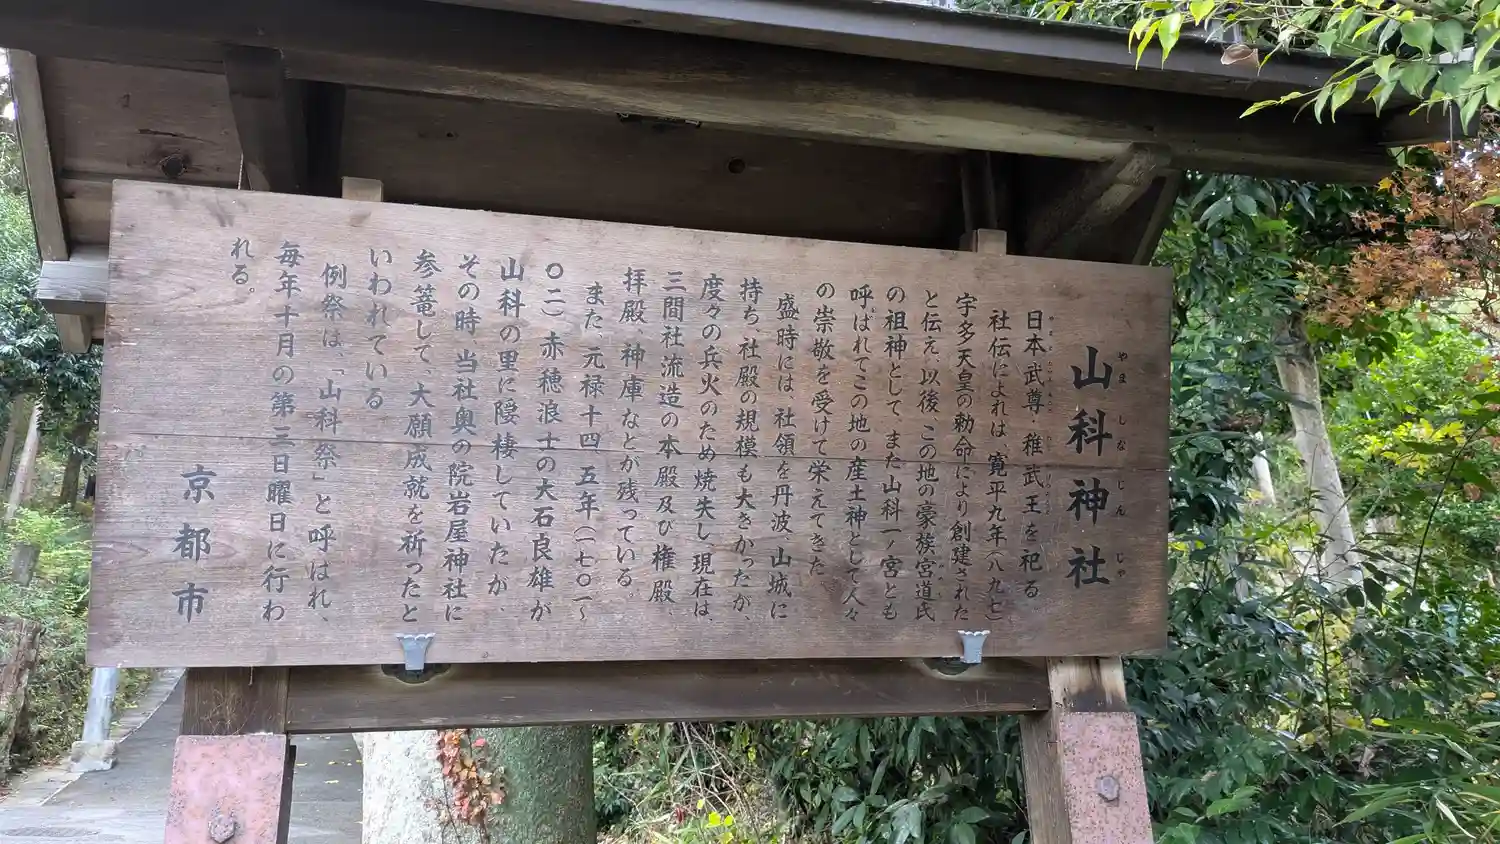 山科神社
日本武尊・稚武王を祀る。
社伝によれば寛平九年(八九七)
宇多天皇の勅命により創建された
と伝え、以後、この地の豪族宮道氏
の祖神として、また山科一ノ宮とも
呼ばれてこの地の産土神として人々
の崇敬を受けて栄えてきた
盛時には、社領を丹波、山城に
持ち、社殿の規模も大きかったが、
度々の兵火のため焼失し、現在は、
三間社流造の本殿及び権殿、
拝殿、神庫などが残っている。
また、元禄十四、五年(一七〇一〜
〇二)赤穂浪士の大石良雄が
山科の里に隠棲していたが、
その時、当社奥の院岩屋神社に
参篭して、大願成就を祈ったと
いわれている
例祭は、「山科祭」と呼ばれ、
毎年十月の第三日曜日に行わ
れる。
京都市